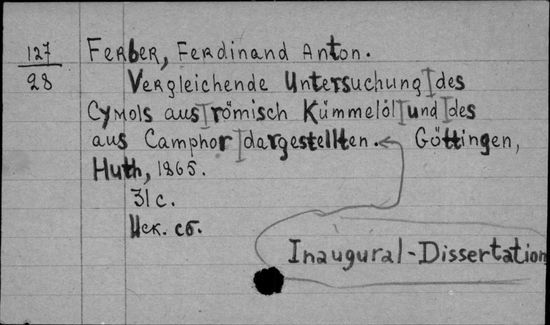 127
28
Ferber, Ferdinand Anton.
Vergleichende Untersuchung des
Cymols aus römisch Kümmelöl und des
aus Camphor dargestellten. Göttingen,
Huth, 1865.
31 с.
Иск. сб.
Inaugural-Dissertation